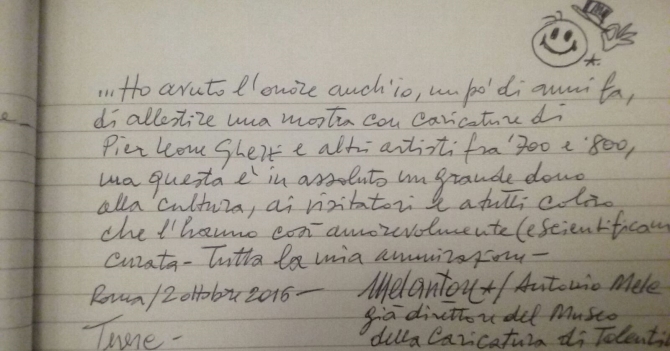 ...Ho avuto l'onore anch'io, un pò di anni fa,
di allestire una mostra con caricature di
Pier Leone Ghezzi e altri artisti fra '700 e '800,
ma questa è in assoluto un grande dono
alla cultura, ai visitatori e a tutti coloro
che l'hanno così amorevolmente (e scientificam
curata - Tutta la mia ammirazione -
Roma / 2 ottobre 2016 -
Melanton * / Antonio Mele
già direttore del Museo
della Caricatura di Tolenti